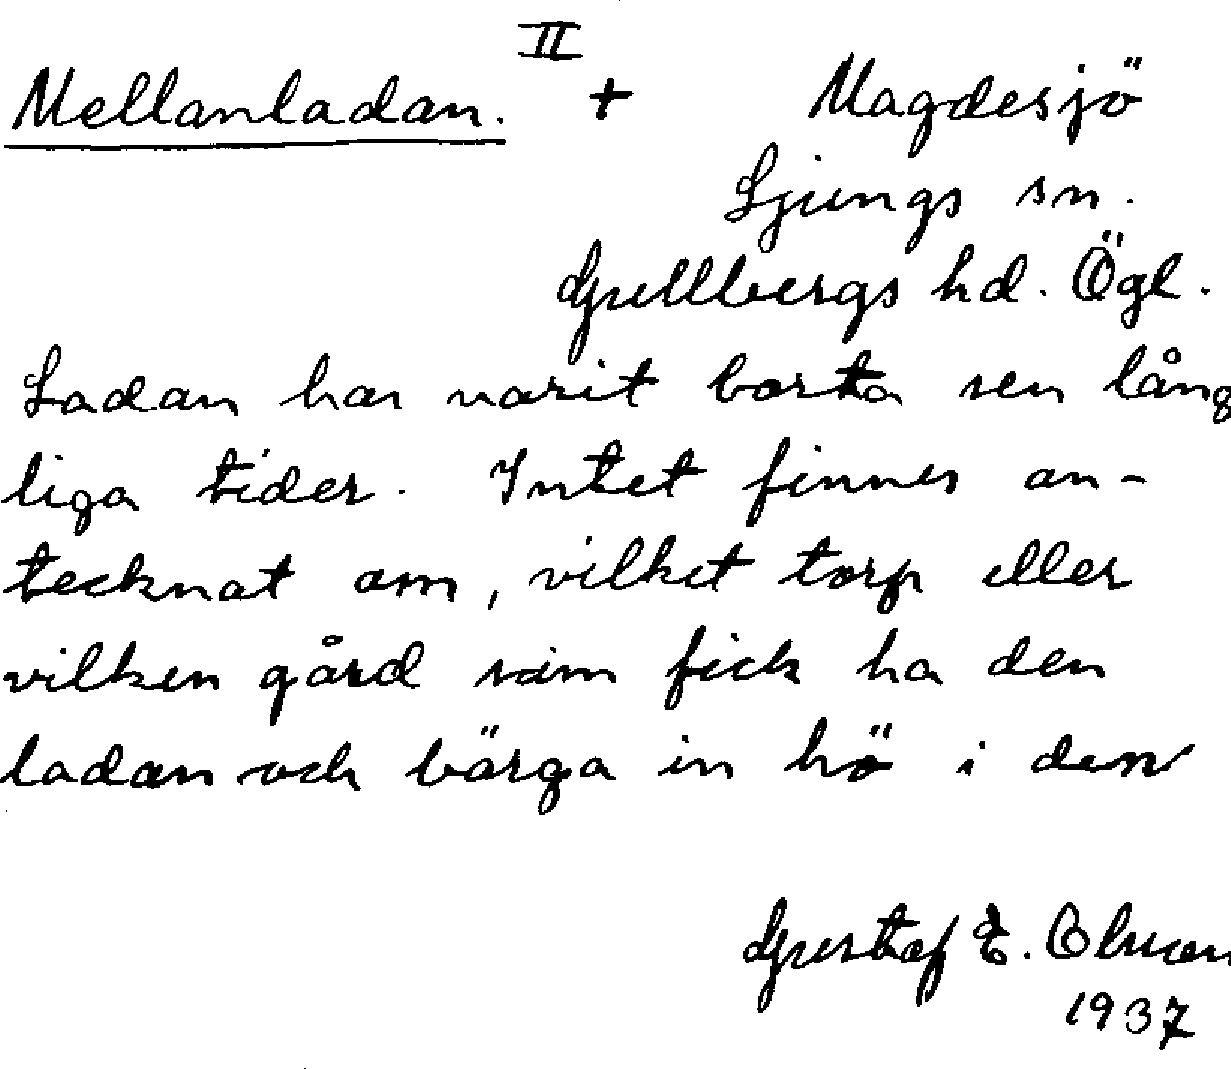 II
Mellanladan. + Magdesjö
Ljungs sn.
Gullbergs hd. Ögl.
Ladan har varit borta sen lång
liga tider. Intet finnes an-
tecknat om, vilket torp eller
vilken gård som fick ha den
ladan och bärga in hö i den
Gustaf E.
1937